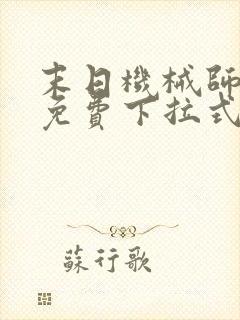 末日機械師
免費下拉式
蘇行歌